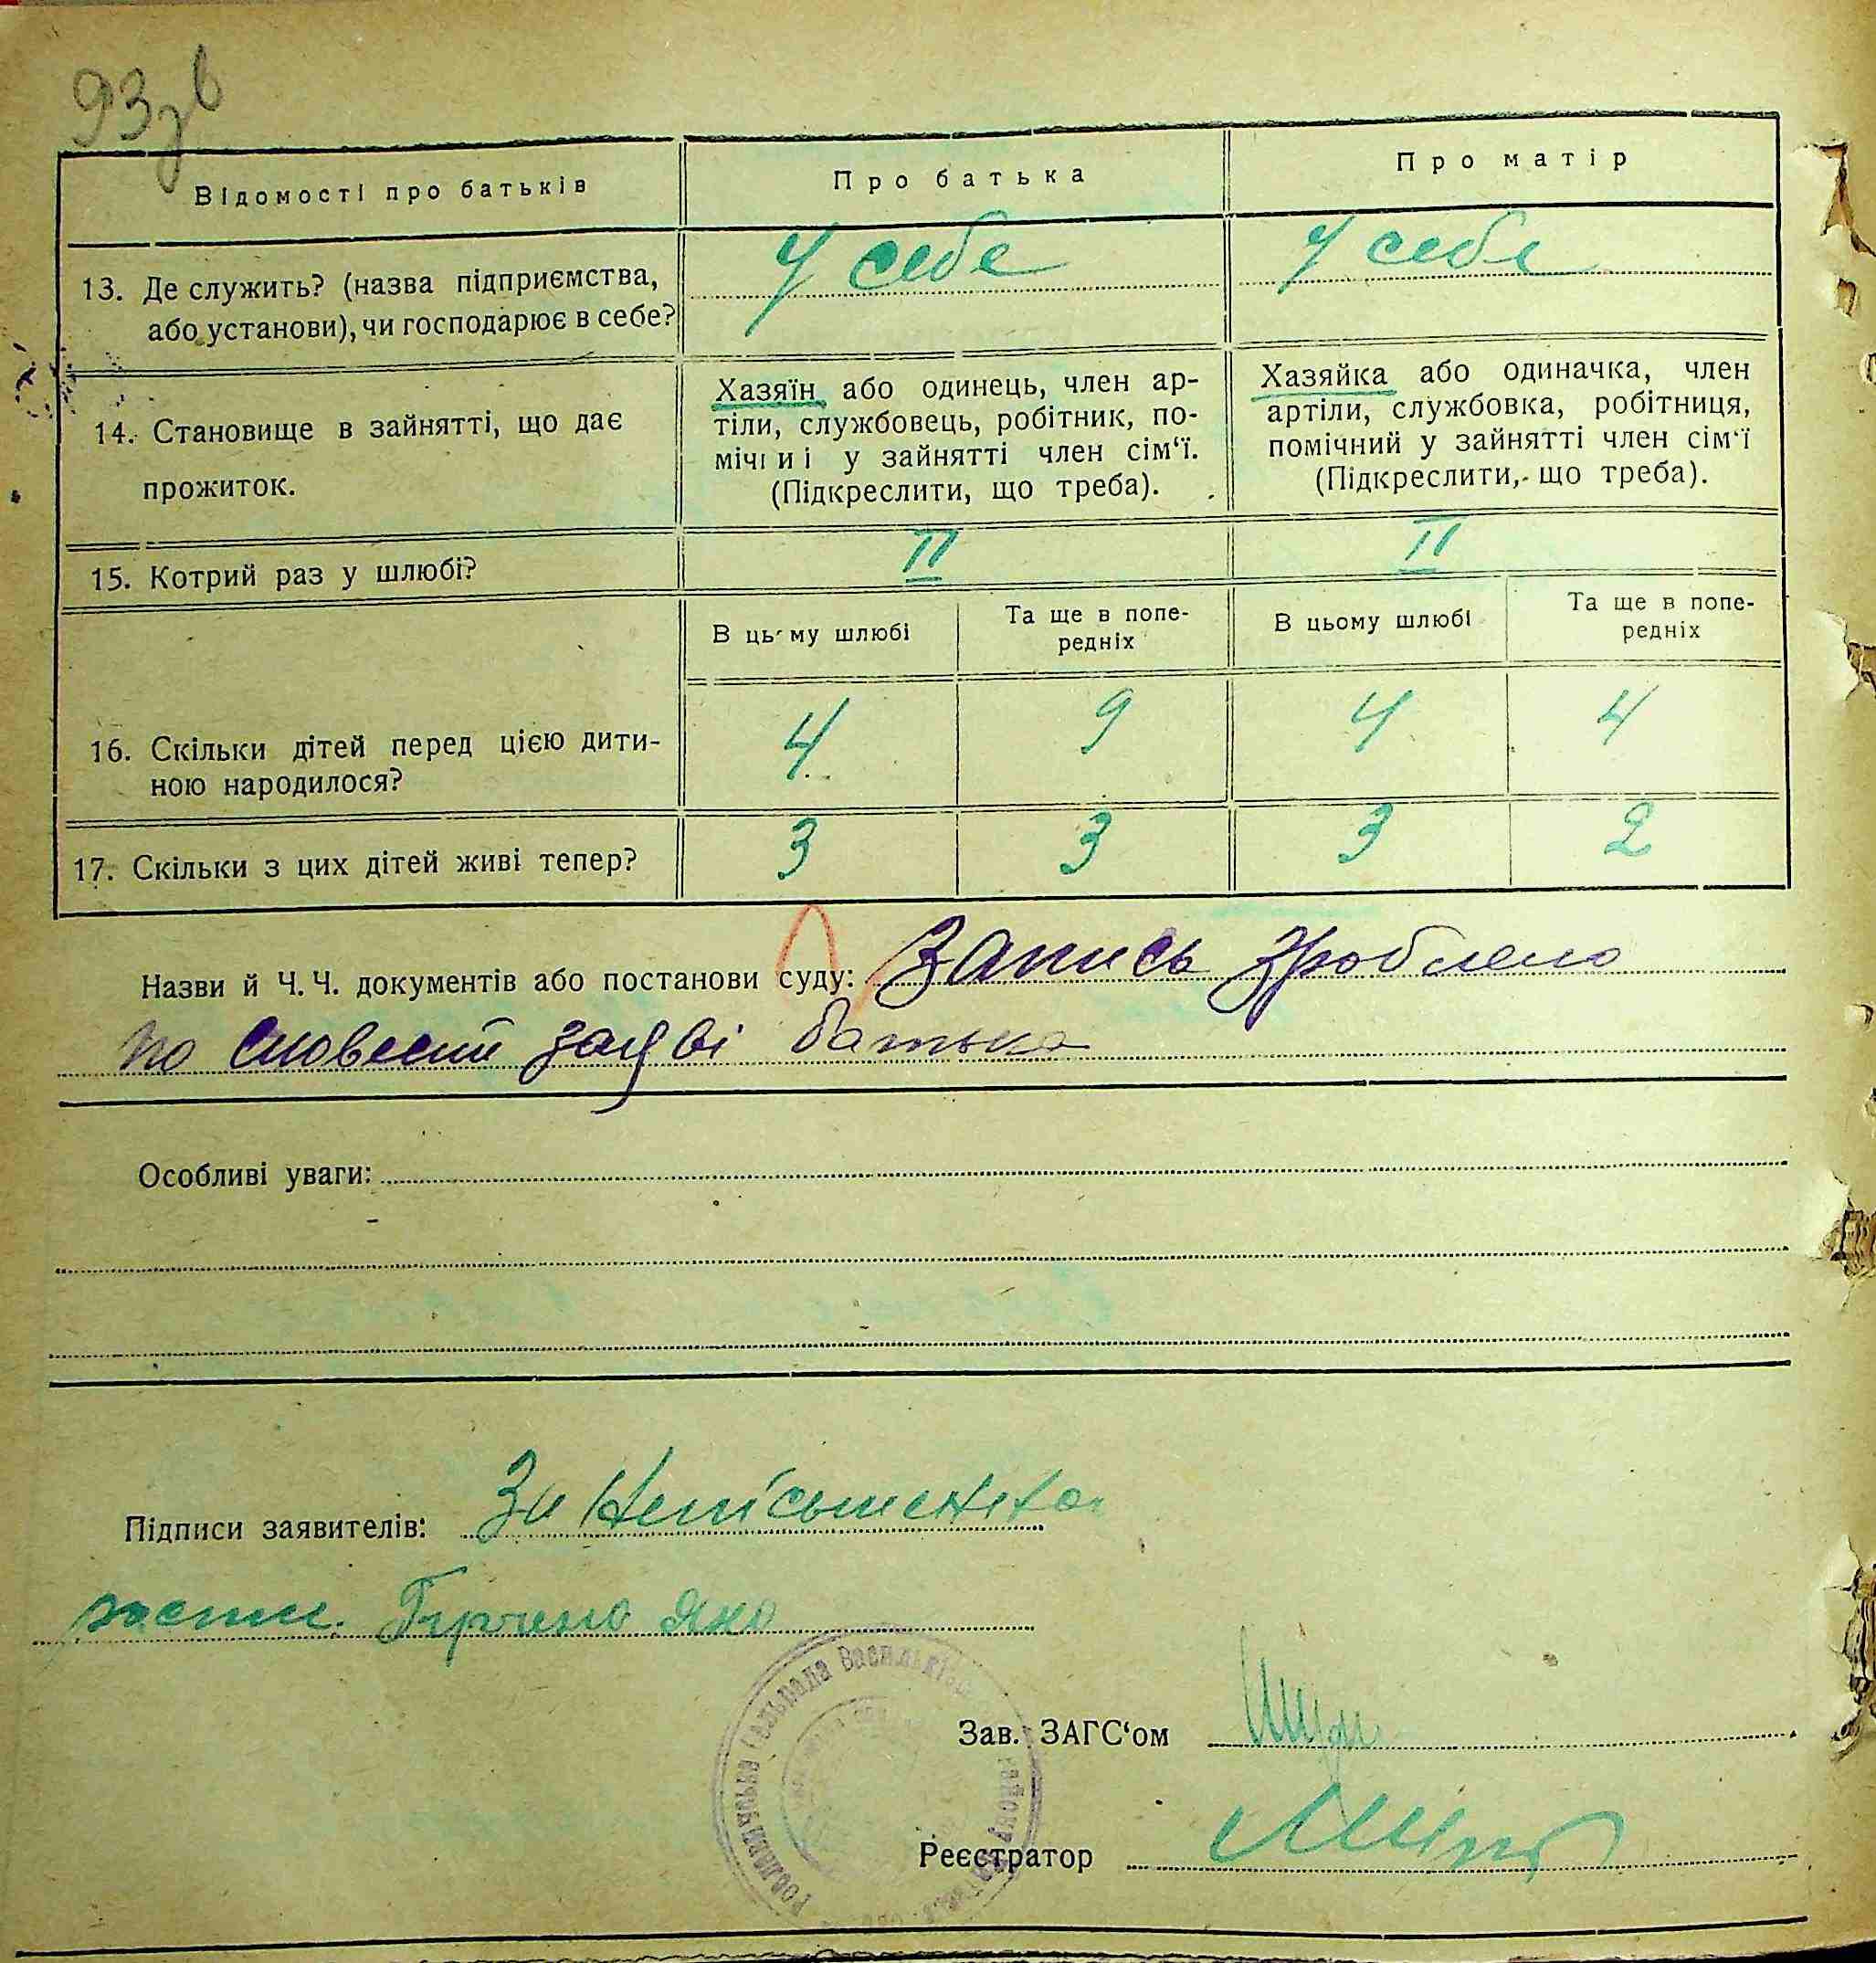 93зв
Відомості про батьків
Про батька
Про матір
13. Де служить? (назва підприємства,
або установи), чи господарює в себе?
У себе
У себе
14. Становище в зайнятті, що дає
прожиток.
Хазяїн або одинець, член ар-
тіли, службовець, робітник, по-
мічний у зайнятті член сім‘ї.
(Підкреслити, що треба).
Хазяйка або одиначка, член
артіли, службовка, робітниця,
помічний у зайнятті член сім‘ї
(Підкреслити, що треба).
15. Котрий раз у шлюбі?
II
II
В цьому шлюбі
Та ще в попе-
редніх
В цьому шлюбі
Та ще в попе-
редніх
16. Скільки дітей перед цією дити-
ною народилося?
4
9
4
4
17. Скільки з цих дітей живі тепер?
3
3
3
2
Назви й Ч. Ч. документів або постанови суду: Запись зроблено
по словесній заяві батька
Особливі уваги:
Підписи заявителів: За Неписьменного
Зав. ЗАГС‘ом
Реєстратор
сельрада Васильків
району